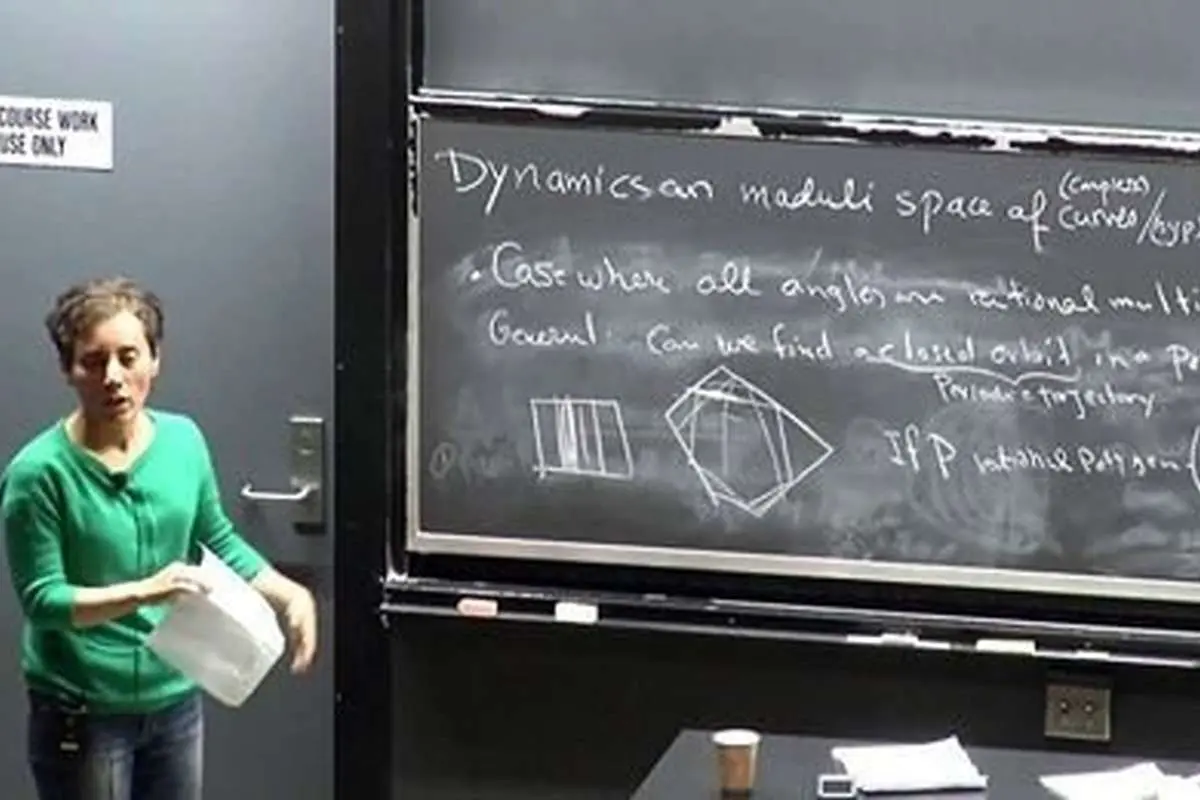 COURSE WORK
USE ONLY
Dynamics on moduli space of (complex) curves/hyp
. Case where all angles are rational mult
General: Can we find a closed orbit in a Po
Periodic trajectory
If P rational polygon (